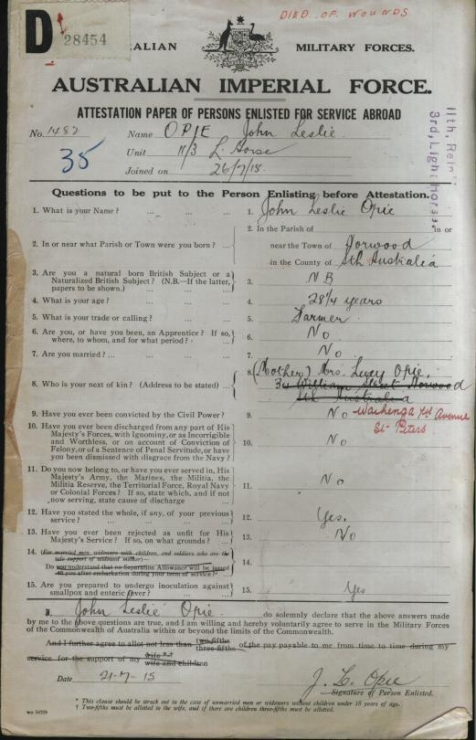 DIED OF WOUNDS
D
28454
ALIAN MILITARY FORCES.
AUSTRALIAN IMPERIAL FORCE.
ATTESTATION PAPER OF PERSONS ENLISTED FOR SERVICE ABROAD
No. 1487 Name OPIE John Leslie
35
Unit 11/3 L. Horse
Joined on 26/7/15.
11th. Rein'
3rd. Light Horse
Questions to be put to the Person Enlisting before Attestation.
1. What is your Name? ... ... ... 1. John Leslie Opie
2. In or near what Parish or Town were you born? ...
2. In the Parish of in or
near the Town of Norwood
in the County of Sth Australia
3. Are you a natural born British Subject or a
Naturalized British Subject? (N.B.—If the latter,
papers to be shown.) 3. N B
4. What is your age? ... ... ... 4. 28 1/4 years
5. What is your trade or calling? ... ... 5. Farmer
6. Are you, or have you been, an Apprentice? If so,
where, to whom, and for what period? 6. No
7. Are you married? ... ... ... 7. No
8. Who is your next of kin? (Address to be stated) ...
8. (Mother) Mrs. Lucy Opie.
William Street Norwood
Sth Australia
Waikenga 2nd Avenue
St Peters
9. Have you ever been convicted by the Civil Power? 9. No
10. Have you ever been discharged from any part of His
Majesty's Forces, with Ignominy, or as Incorrigible
and Worthless, or on account of Conviction of
Felony, or of a Sentence of Penal Servitude, or have
you been dismissed with disgrace from the Navy? 10. No
11. Do you now belong to, or have you ever served in, His
Majesty's Army, the Marines, the Militia, the
Militia Reserve, the Territorial Force, Royal Navy
or Colonial Forces? If so, state which, and if not
now serving, state cause of discharge ... 11. No
12. Have you stated the whole, if any, of your previous
service? ... ... ... 12. Yes.
13. Have you ever been rejected as unfit for His
Majesty's Service? If so, on what grounds? 13. No
14. (For married men, widowers with children, and soldiers who are the
sole support of widowed mother)—
Do you understand that no Separation Allowance will be
after embarkation during your term of service? 14.
15. Are you prepared to undergo inoculation against
smallpox and enteric fever? 15. Yes
I, John Leslie Opie do solemnly declare that the above answers made
by me to the above questions are true, and I am willing and hereby voluntarily agree to serve in the Military Forces
of the Commonwealth of Australia within or beyond the limits of the Commonwealth.
And I further agree to allot not less than two-fifths
three-fifths of the pay payable to me from time to time during my
service for the support of my wife
wife and children
Date 21-7-15
J. L. Opie
Signature of Person Enlisted.
* This clause should be struck out in the case of unmarried men or widowers without children under 18 years of age.
† Two-fifths must be allotted to the wife, and if there are children three-fifths must be allotted.